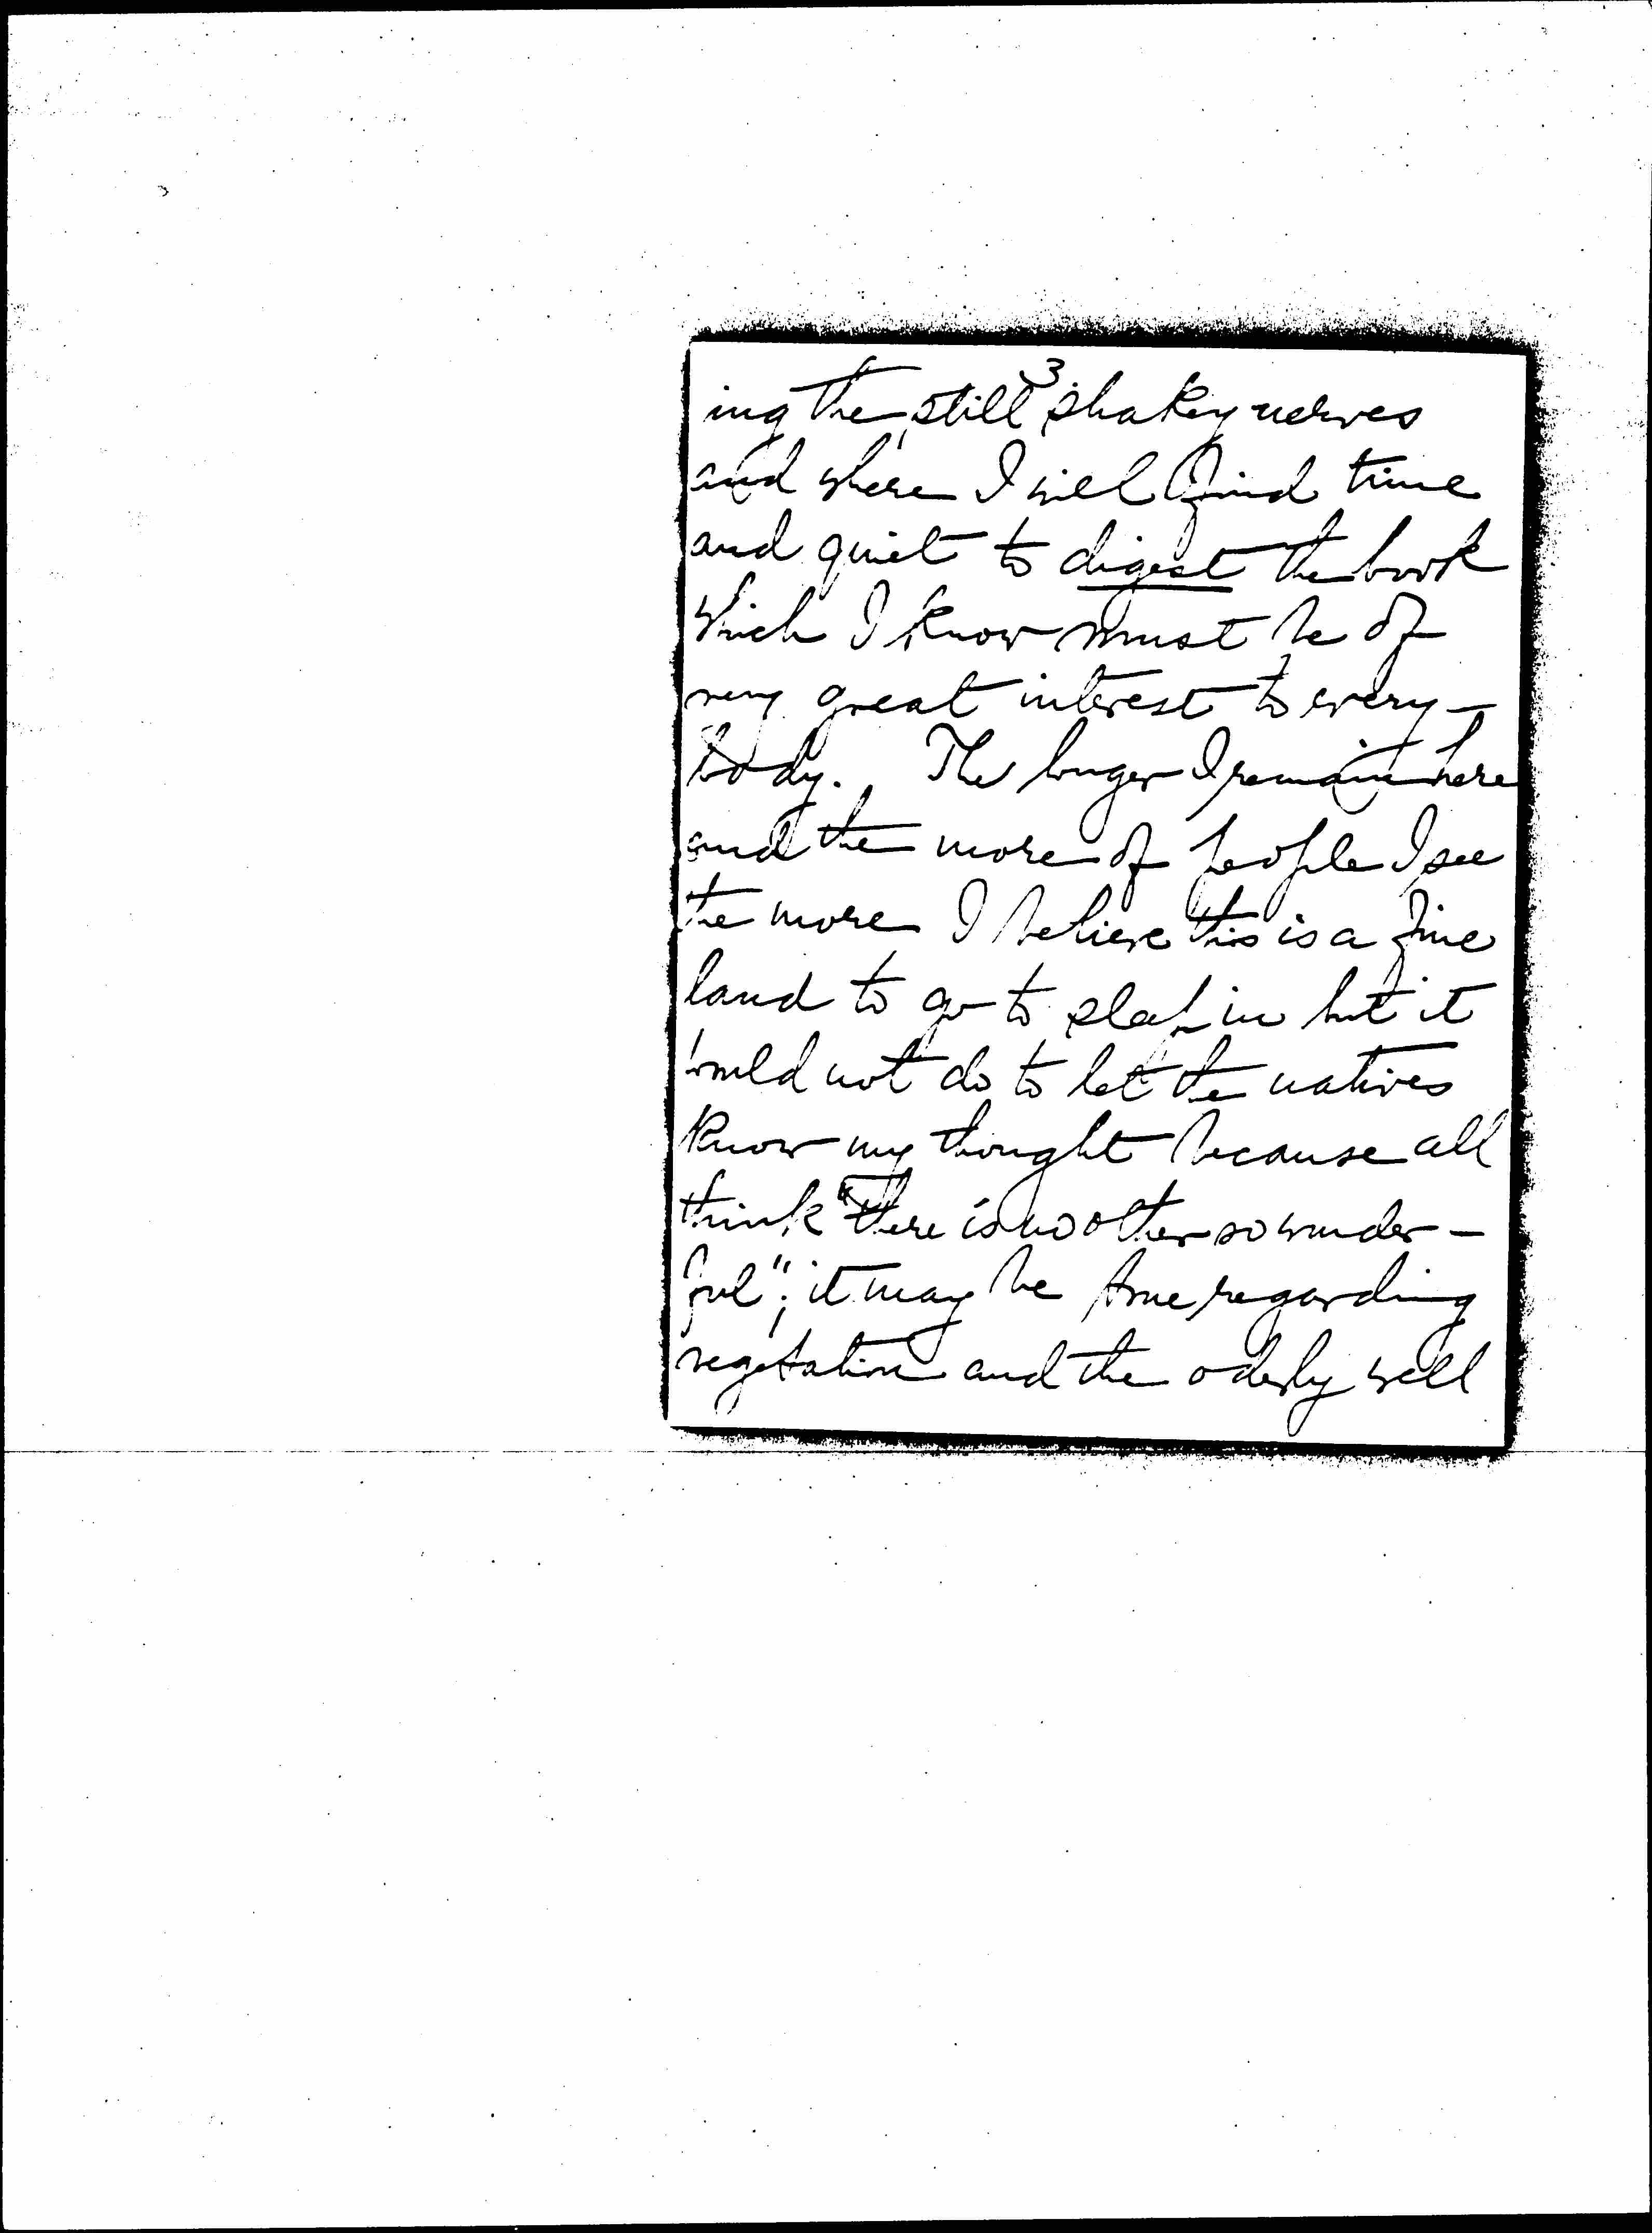 3
ing the still shakey nerves
and where I will find time
and quiet to digest the book
which I know must be of
very great interest to every-
body. The longer I remain here
and the more of people I see
the more I believe this is a fine
land to go to sleep in but it
would not do to let the natives
know my thought because all
think "there is no other so wunder-
ful"; it may be true regarding
vegetation and the oderly well